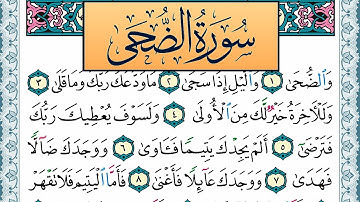 سُورَةُ الضُّحَى
وَالضُّحَى ١ وَاللَّيْلِ إِذَا سَجَى ٢ مَا وَدَّعَكَ رَبُّكَ وَمَا قَلَى ٣
وَلَلْآخِرَةُ خَيْرٌ لَّكَ مِنَ الْأُولَى ٤ وَلَسَوْفَ يُعْطِيكَ رَبُّكَ
فَتَرْضَى ٥ أَلَمْ يَجِدْكَ يَتِيمًا فَآوَى ٦ وَوَجَدَكَ ضَالًّا
فَهَدَى ٧ وَوَجَدَكَ عَائِلًا فَأَغْنَى ٨ فَأَمَّا الْيَتِيمَ فَلَا تَقْهَرْ